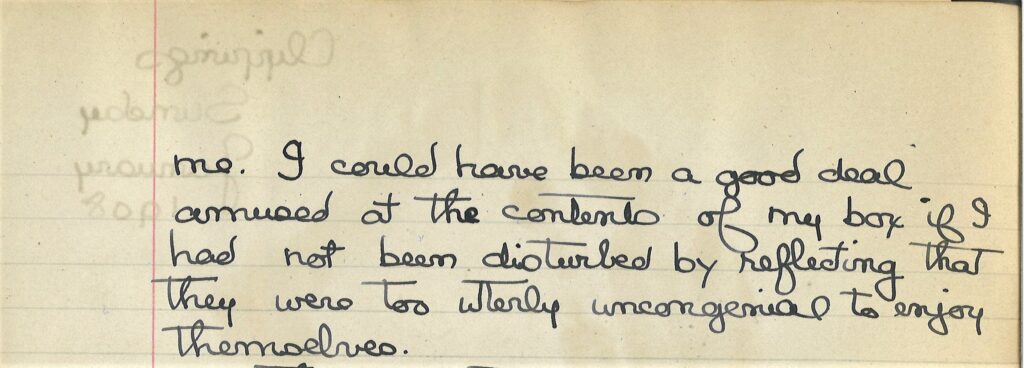 me. I could have been a good deal
amused at the contents of my box if I
had not been disturbed by reflecting that
they were too utterly uncongenial to enjoy
themselves.